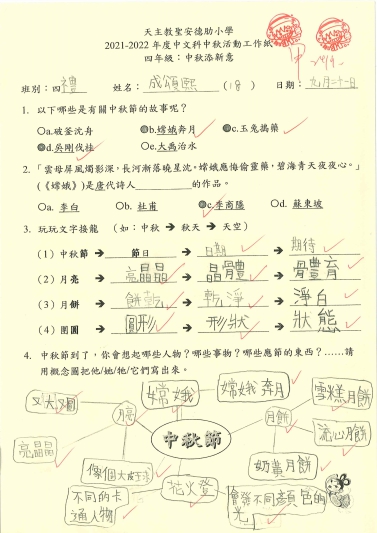 天主教聖安德肋小學
2021-2022 年度中文科中秋活動工作紙
四年級：中秋添新意
班別：四禮 姓名：成頌熙 (18) 日期：九月二十一日
1. 以下哪些是有關中秋節的故事呢？
a.破釜沈舟 b.嫦娥奔月 c.玉兔搗藥
d.吳剛伐桂 e.大禹治水
2.「雲母屏風燭影深，長河漸落曉星沈。嫦娥應悔偷靈藥，碧海青天夜夜心。」
(《嫦娥》)是唐代詩人＿＿＿＿的作品。
a. 李白 b. 杜甫 c.李商隱 d. 蘇東坡
3. 玩玩文字接龍 （如：中秋 ➔ 秋天 ➔ 天空）
(1) 中秋節 ➔ 節日 ➔ 日期 ➔ 期待
(2) 月亮 ➔ 亮晶晶 ➔ 晶體 ➔ 體育
(3) 月餅 ➔ 餅乾 ➔ 乾淨 ➔ 淨白
(4) 團圓 ➔ 圓形 ➔ 形狀 ➔ 狀態
4. 中秋節到了，你會想起哪些人物？哪些事物？哪些應節的東西？……請
用概念圖把他/她/牠/它們寫出來。
嫦娥 嫦娥奔月 雪糕月餅
又大又圓 月餅
中秋節
亮晶晶 流心月餅
奶黃月餅
花火燈
不同的卡
通人物
會發不同顏色的
光